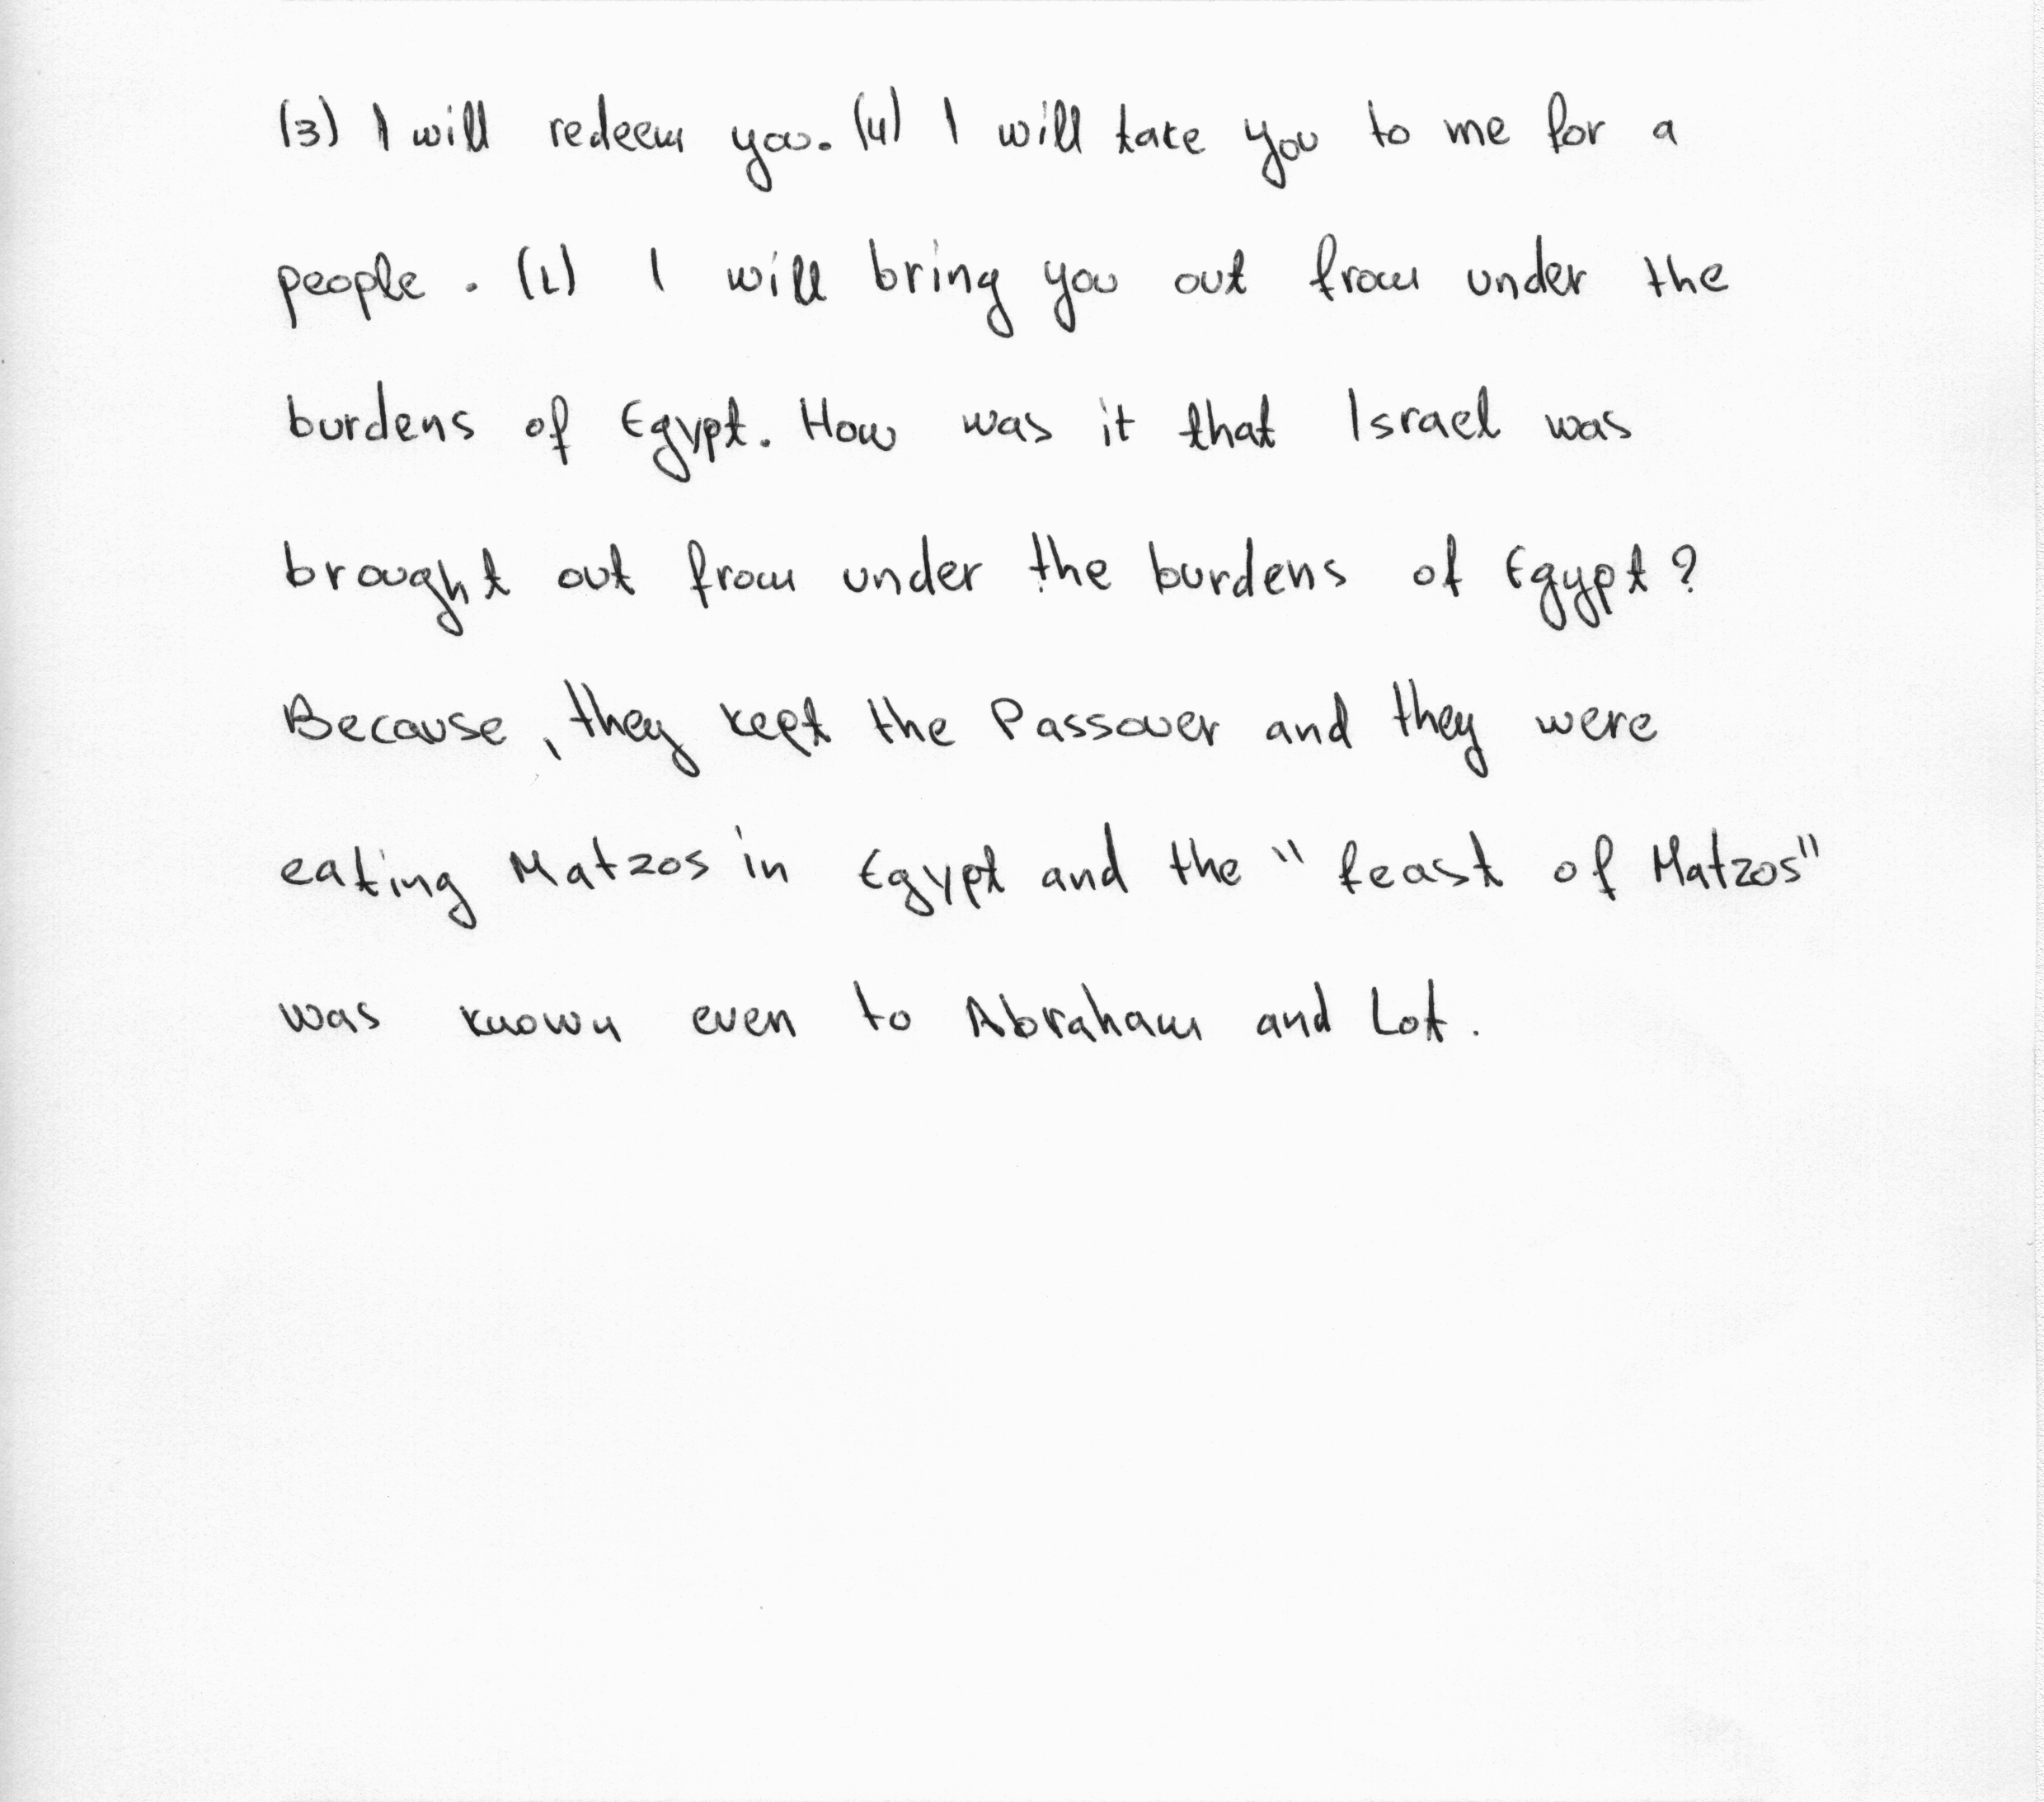 (3) I will redeem you. (4) I will take you to me for a
people . (1) I will bring you out from under the
burdens of Egypt. How was it that Israel was
brought out from under the burdens of Egypt?
Because, they kept the Passover and they were
eating Matzos in Egypt and the "feast of Matzos"
was known even to Abraham and Lot.